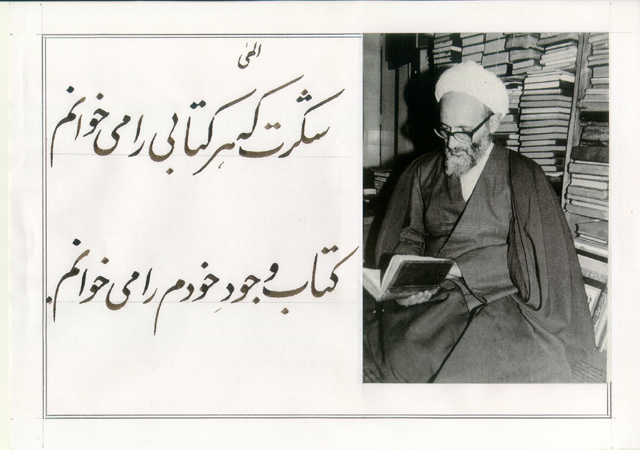 الهی
شکرت که هر کتابی را می خوانم
کتاب وجودِ خودم را می خوانم.